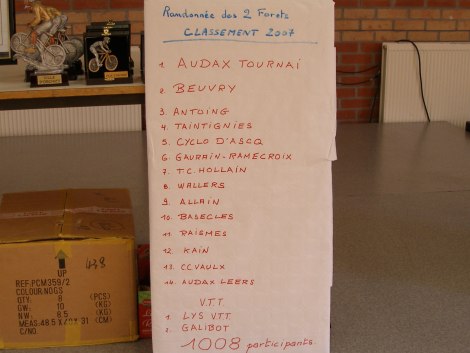 Randonnée des 2 Forêts
CLASSEMENT 2007
1. AUDAX TOURNAI
2. BEUVRY
3. ANTOING
4. TAINTIGNIES
5. CYCLO D'ASCQ
6. GAURAIN-RAMECROIX
7. T.C. HOLLAIN
8. WALLERS
9. ALLAIN
10. BASECLES
11. RAISMES
12. KAIN
13. CC VAULX
14. AUDAX LEERS
V.T.T
1. LYS VTT
2. GALIBOT
1008 participants
UP
438
REF.PCM359/2
COLOUR:NOGS
QTY: 8 (PCS)
GW: 10 (KG)
NW: 8.5 (KG)
MEAS: 31 (CM)
C/NO.